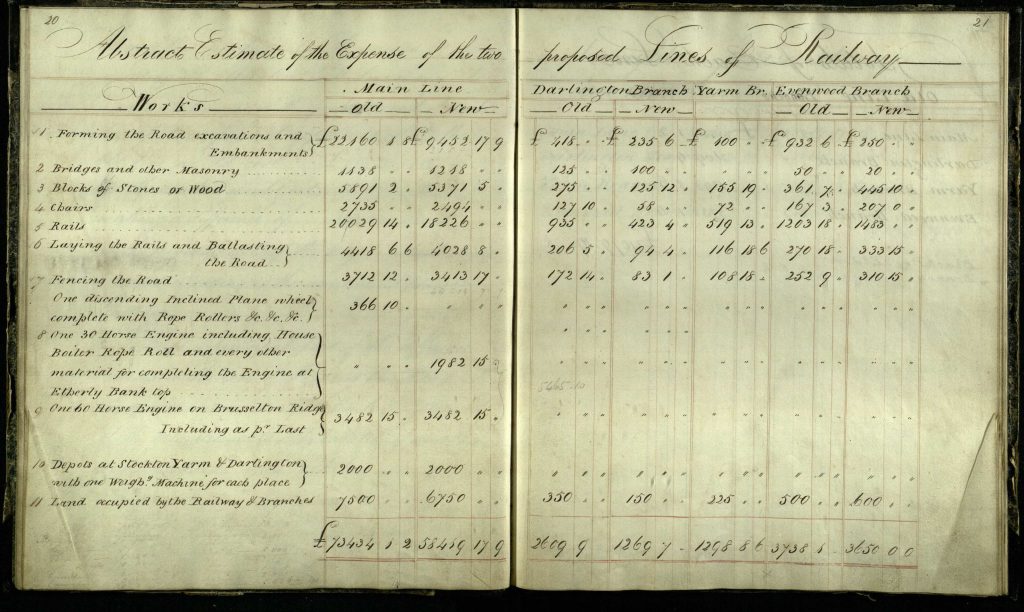 20
21
Abstract Estimate of the Expense of the two proposed Lines of Railway
Works
Main Line
Old New
Darlington Branch Yarm Br. Evenwood Branch
Old New Old New
1 Forming the Road excavations and
Embankments £22160 1 8 £9452 17 9 £418 " " £235 6 " £100 " " £932 6 " £250 " "
2 Bridges and other Masonry 1138 " " 1218 " " 125 " " 100 " " 50 " " 20 " "
3 Blocks of Stones or Wood 5891 2 " 5371 5 " 275 " " 125 12 " 155 19 " 361 7 " 445 10 "
4 Chairs 2735 " " 2494 " " 127 10 " 58 " " 72 " " 167 3 " 207 0 "
5 Rails 20029 14 " 18226 " " 935 " " 423 4 " 519 13 " 1203 18 " 1483 " "
6 Laying the Rails and Ballasting
the Road 4418 6 6 4028 8 " 206 5 " 94 4 " 116 18 6 270 18 " 333 15 "
7 Fencing the Road 3712 12 " 3413 17 " 172 14 " 83 1 " 108 15 " 252 9 " 310 15 "
One discending Inclined Plane wheel
complete with Rope Rollers &c. &c. &c. 366 10 " " " " " " " " " " " " " " " " " " "
8 One 30 Horse Engine including House
Boiler Rope Roll and every other
material for completing the Engine at
Etherly Bank top " " " 1982 15 " " " " " " " " " " " " " " " "
5465.10
9 One 60 Horse Engine on Brusselton Ridge
Including as pr. Last 3482 15 " 3482 15 " " " " " " " " " " " " " " " "
10 Depots at Stockton Yarm & Darlington
with one Weighg. Machine for each place 2000 " " 2000 " " " " " " " " " " " " " " " " "
11 Land occupied by the Railway & Branches 7500 " " 6750 " " 350 " " 150 " " 225 " " 500 " " 600 " "
£73434 1 2 58419 17 9 2609 9 1269 7 " 1298 5 6 3738 1 " 3650 0 0